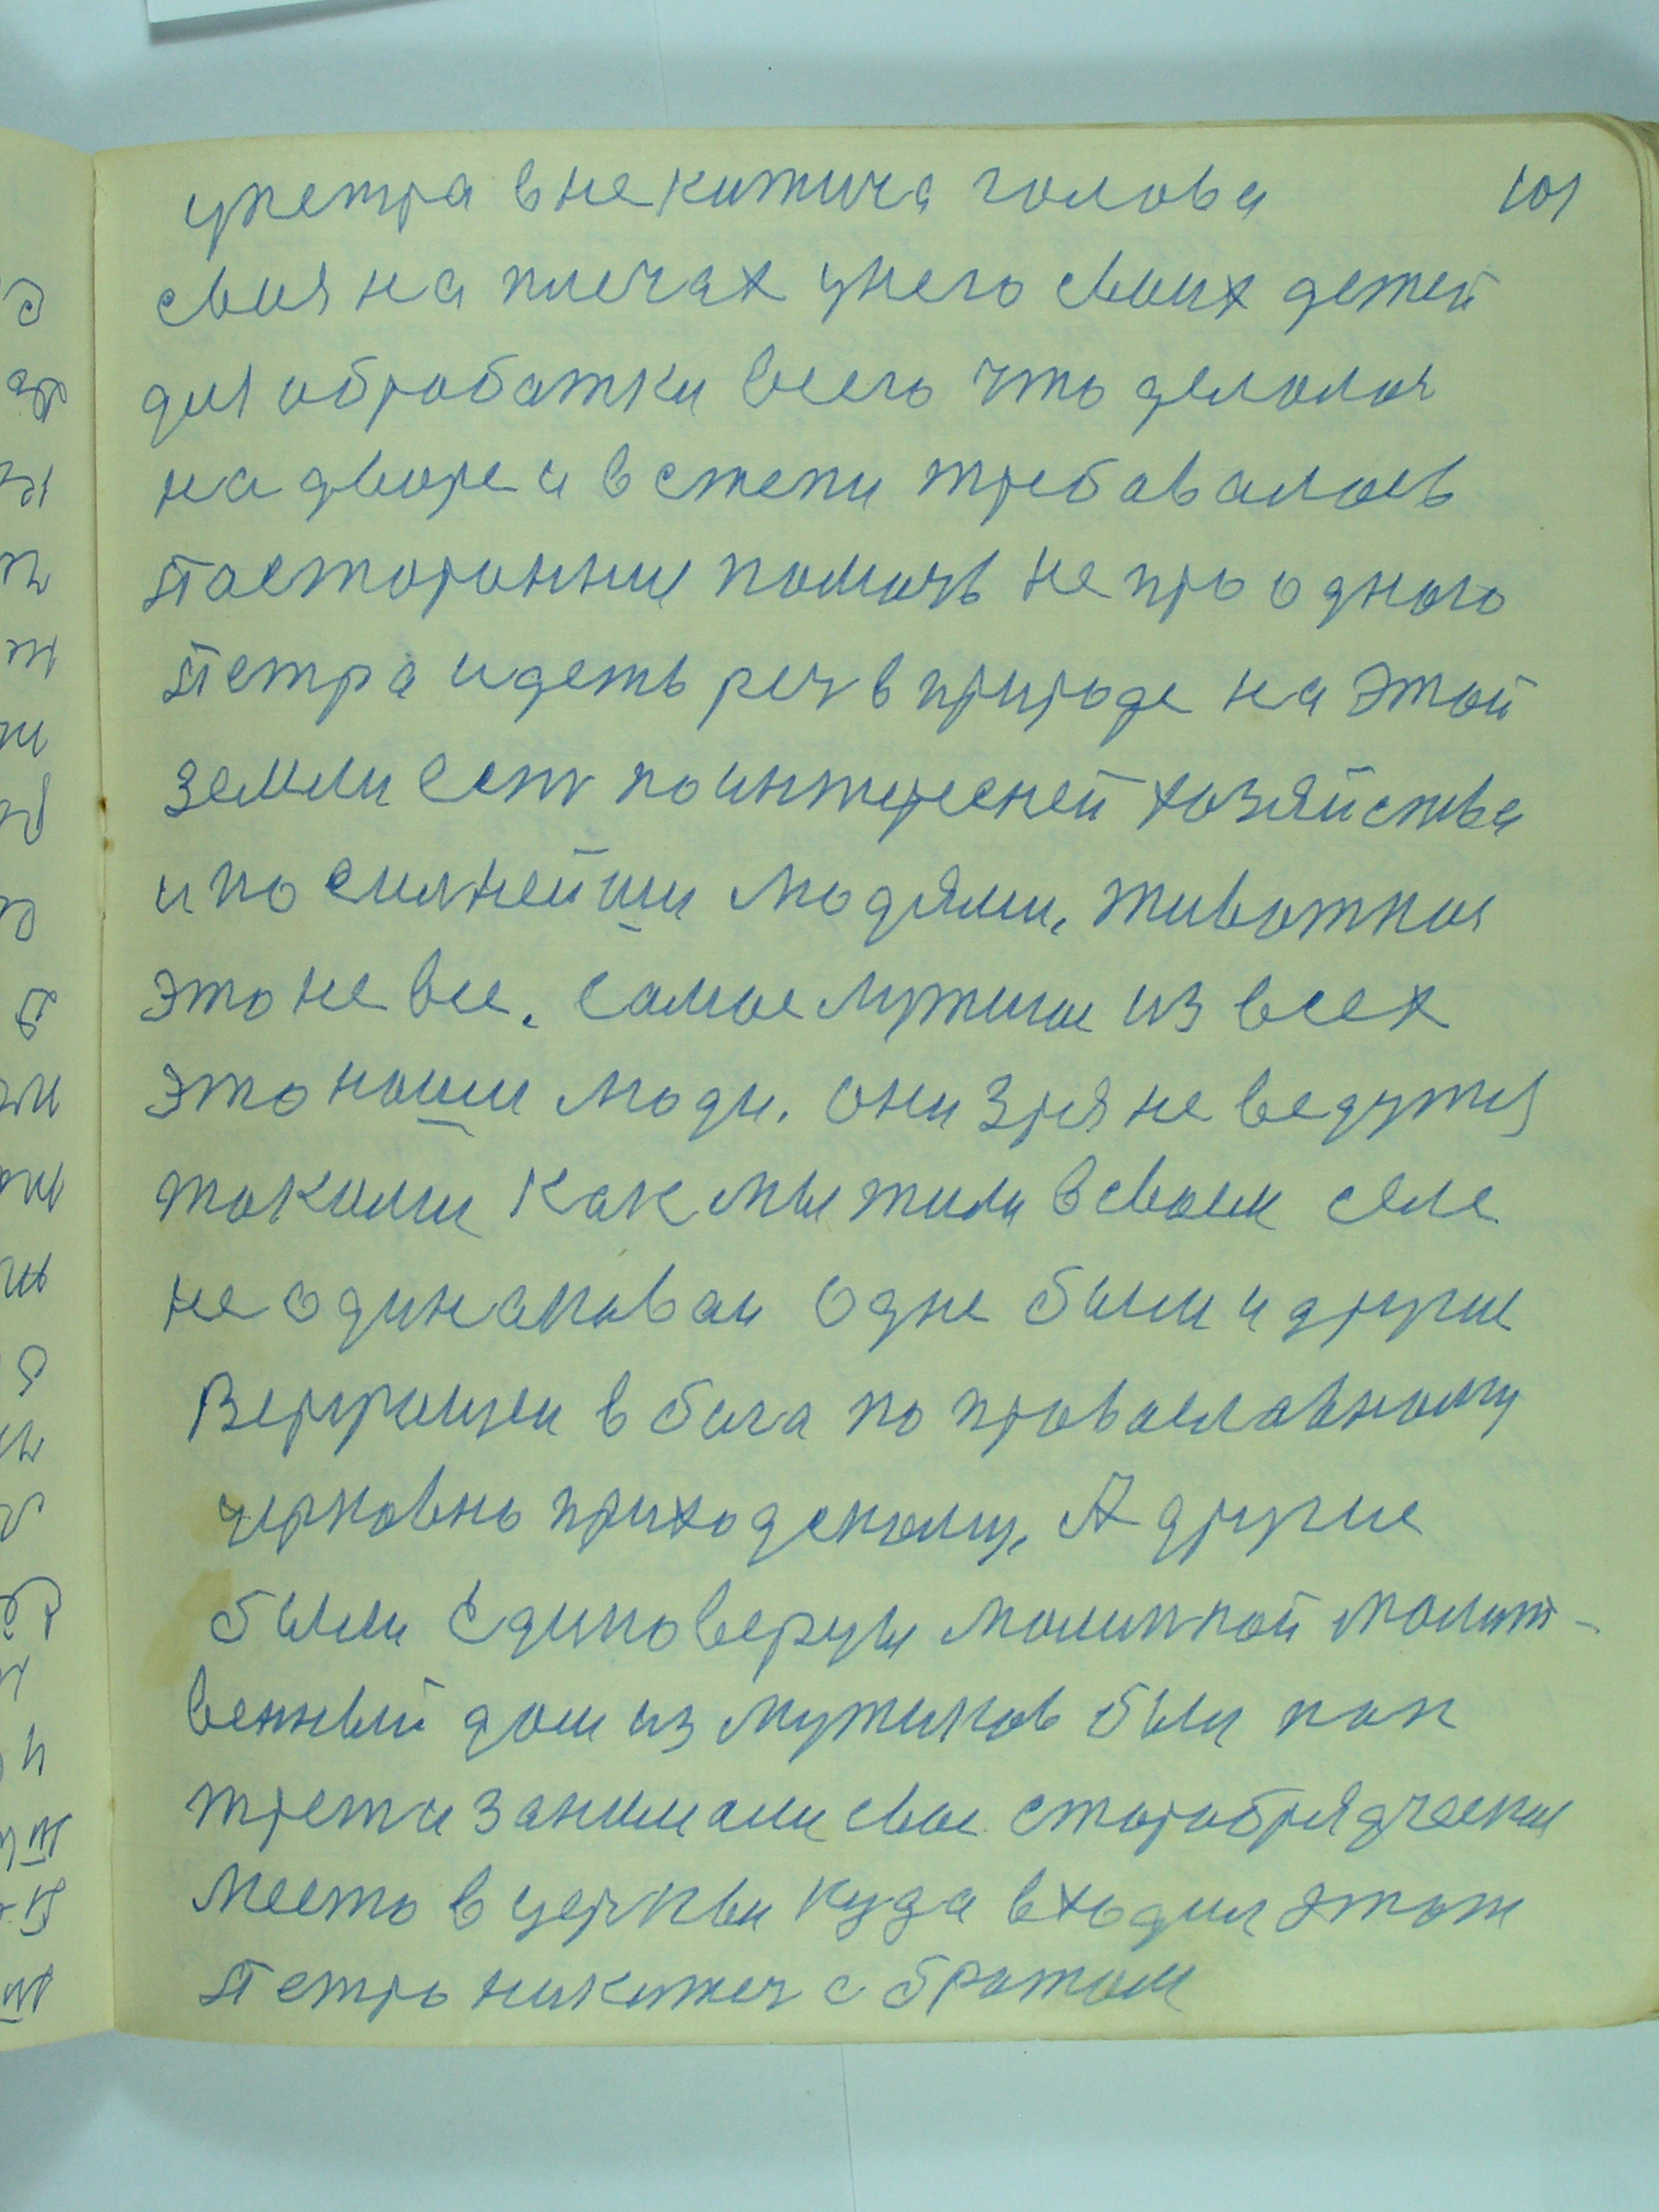 101
упетра внекитича голова
своя на плечах унего своих детей
для обработки всего что делолоя
на дворе и в степи требавалось
Пасторонние помочь не про одного
Петра идеть реч в природе на этой
земли ест поинтересней хозяйства
и по силнейши людями, животноя
это не все. Самое лутшое из всех
это наши люди. они зря не ведутся
токими как мы жили в своем селе
не одинаковаи одне были и другие
Верующеи в бога по праваславному
церковно приходскому, А другие
были Единоверцы молилкой молит-
венный дом из мужиков был поп
трети занимали свое старобрядческое
место в церкви куда входил этот
Петро никитич с братом